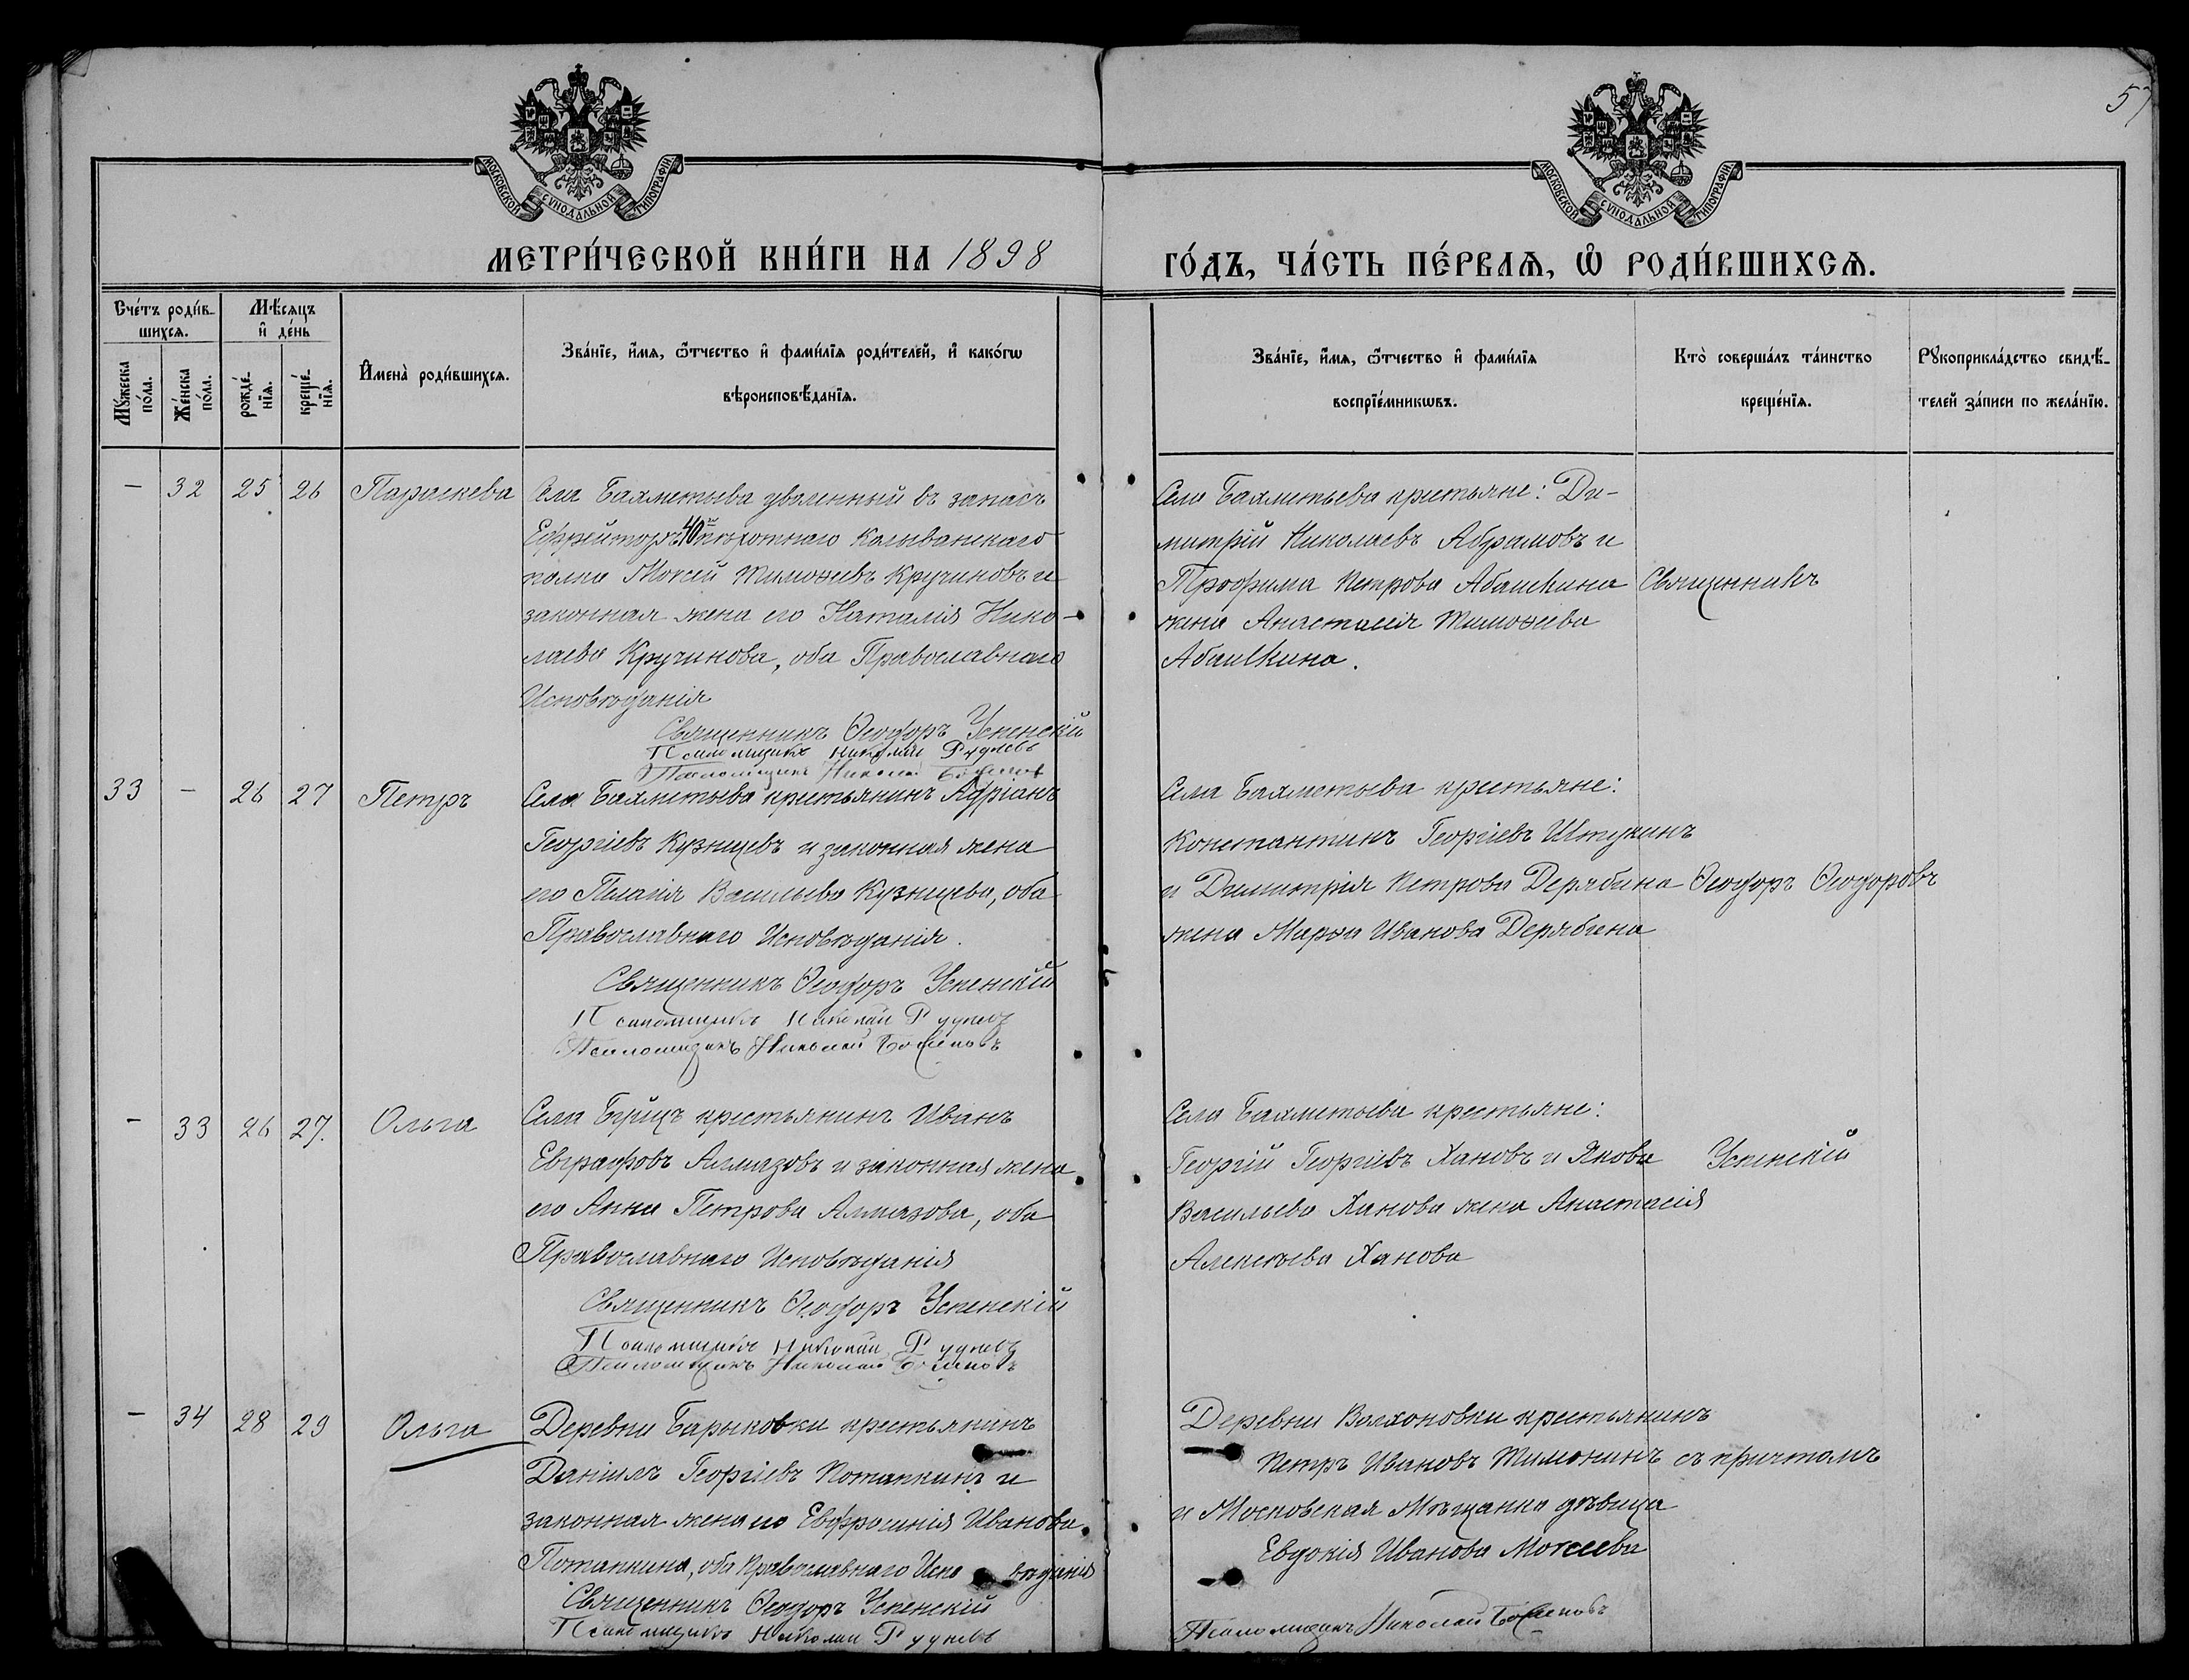 57
МОСКОВСКОЙ СѴНОДАЛЬНОЙ ТИПОГРАФІИ
МОСКОВСКОЙ СѴНОДАЛЬНОЙ ТИПОГРАФІИ
МЕТРИ́ЧЕСКОЙ КНИ́ГИ НА 1898
ГО́ДЪ, ЧА́СТЬ ПЕ́РВАѦ, Ѡ҆ РОДИ́ВШИХСѦ.
Сче́тъ роди́в-
шихсѧ.
Мѣ́сѧцъ
и҆ де́нь
Мꙋ́жеска
по́ла.
Же́нска
по́ла.
рожде́-
нїѧ.
креще́-
нїѧ.
И҆мена̀ роди́вшихсѧ.
Зва́нїе, и҆́мѧ, ѻ҆́тчество и҆ фами́лїѧ роди́телей, и҆ како́гѡ
вѣроисповѣ́данїѧ.
Зва́нїе, и҆́мѧ, ѻ҆́тчество и҆ фами́лїѧ
воспрїе́мникѡвъ.
Кто̀ соверша́лъ та́инство
креще́нїѧ.
Рꙋкоприкла́дство свидѣ́-
телей за́писи по жела́нїю.
— 32 25 26 Параскева
Села Бахметьева уволенный въ запасъ
Ефрейторъ 40го пѣхотнаго Колыванскаго
полка Мокей Тимоѳеевъ Кручиновъ и
законная жена его Наталія Нико-
лаева Кручинова, оба Православнаго
Исповѣданія
Священникъ Ѳеодоръ Успенскій
Псаломщикъ Николай Рудневъ
Псаломщикъ Николай
Села Бахметьева крестьяне: Ди-
митрій Николаевъ Абрамовъ и
Трофима Петрова Абашкина
жена Анастасія Тимоѳеева
Абашкина.
Священникъ
33 — 26 27 Петръ
Села Бахметьева крестьянинъ Адріанъ
Георгіевъ Кузнецевъ и законная жена
его Пелагія Васильева Кузнецева, оба
Православнаго Исповѣданія.
Священникъ Ѳеодоръ Успенскій
Псаломщикъ Николай Рудневъ
Псаломщикъ Николай
Села Бахметьева крестьяне:
Константинъ Георгіевъ Штукинъ
и Димитрія Петрова Дерябина
жена Марѳа Иванова Дерябина
Ѳеодоръ Ѳеодоровъ
— 33 26 27. Ольга
Села Буйцъ крестьянинъ Иванъ
Евграфовъ Алмазовъ и законная жена
его Анна Петрова Алмазова, оба
Православнаго Исповѣданія
Священникъ Ѳеодоръ Успенскій
Псаломщикъ Николай Рудневъ
Псаломщикъ Николай
Села Бахметьева крестьяне:
Георгій Георгіевъ Хановъ и Якова
Васильева Ханова жена Анастасія
Алексѣева Ханова
Успенскій
— 34 28 29 Ольга
Деревни Барыковки крестьянинъ
Даніилъ Георгіевъ Потапкинъ и
законная жена его Евфросинія Иванова
Потапкина, оба Православнаго Исповѣданія
Священникъ Ѳеодоръ Успенскій
Псаломщикъ Николай Рудневъ
Деревни Волхоновки крестьянинъ
Петръ Ивановъ Тимонинъ
и Московская Мѣщанка дѣвица
Евдокія Иванова Моисеева
Псаломщикъ Николай
съ причтомъ